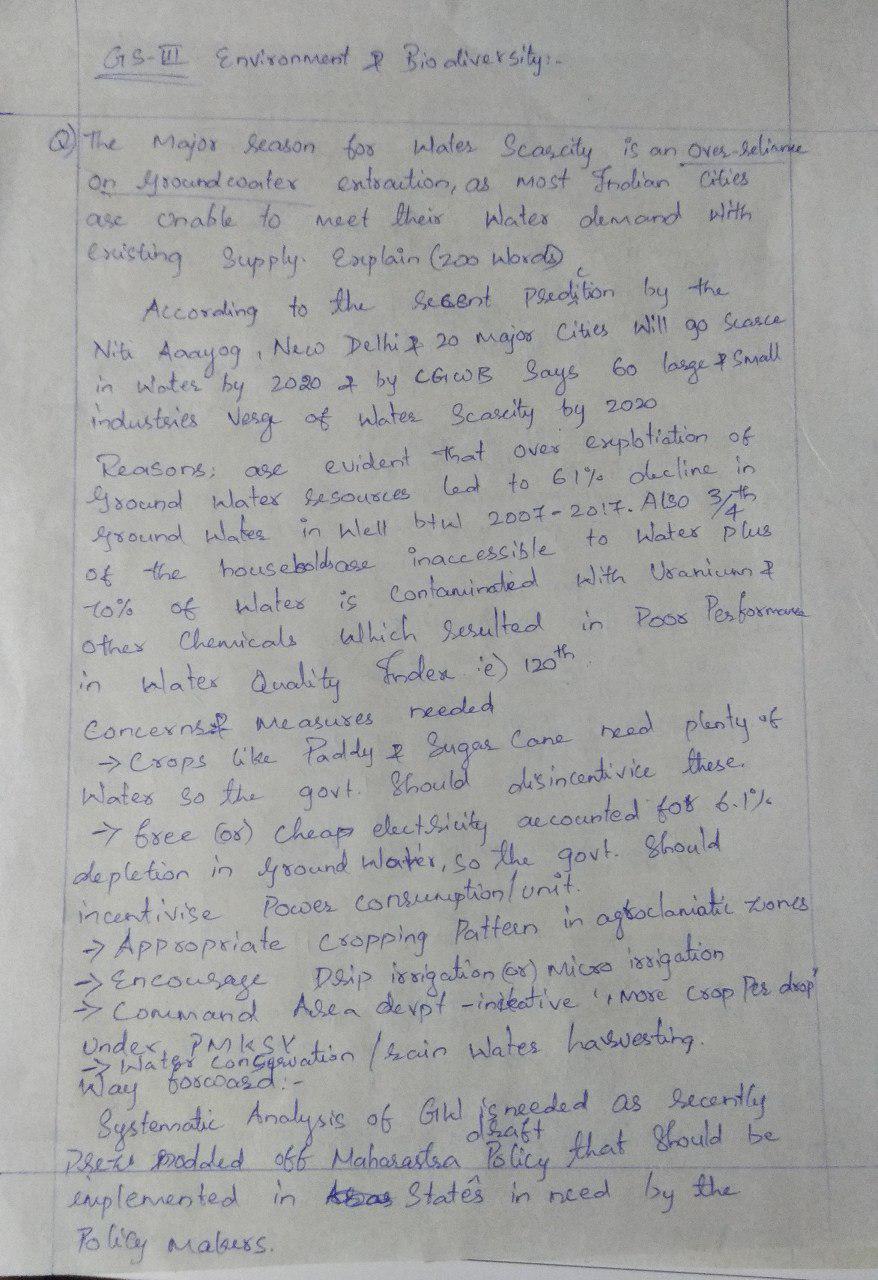 GS-III Environment & Biodiversity:-
Q) The Major reason for Water Scarcity is an over-reliance
on groundwater extraction, as most Indian Cities
are unable to meet their Water demand with
existing Supply. Explain (200 Words)
According to the recent predition by the
c
Niti Aaayog, New Delhi & 20 major Cities Will go Scarce
in Water by 2020 & by CGWB Says 60 large & Small
industries Verge of Water Scarcity by 2020
Reasons: are evident that over explotiation of
Ground Water resources led to 61% decline in
ground Water in Well btw 2007-2017. Also 3/4th
of the households are inaccessible to Water plus
70% of Water is Contaminated With Uranium &
other Chemicals Which resulted in Poor Performance
in Water Quality Index ie) 120th.
Concerns & Measures needed
→ Crops like Paddy & Sugar Cane need plenty of
Water so the govt. Should disincentivice these.
→ free (or) cheap electricity accounted for 6.1%
depletion in ground Water, so the govt. Should
incentivise Power consumption/unit.
→ Appropriate Cropping Pattern in agroclamiatic zones
→ Encourage Drip irrigation (or) Micro irrigation
→ Command Area devpt - initeative "More Crop Per drop"
under PMKSY
→ Water Conservation / rain Water harvesting.
Way forward:-
Systematic Analysis of GW is needed as recently
draft
modded off Maharastra Policy that Should be
implemented in States in need by the
Policy makers.